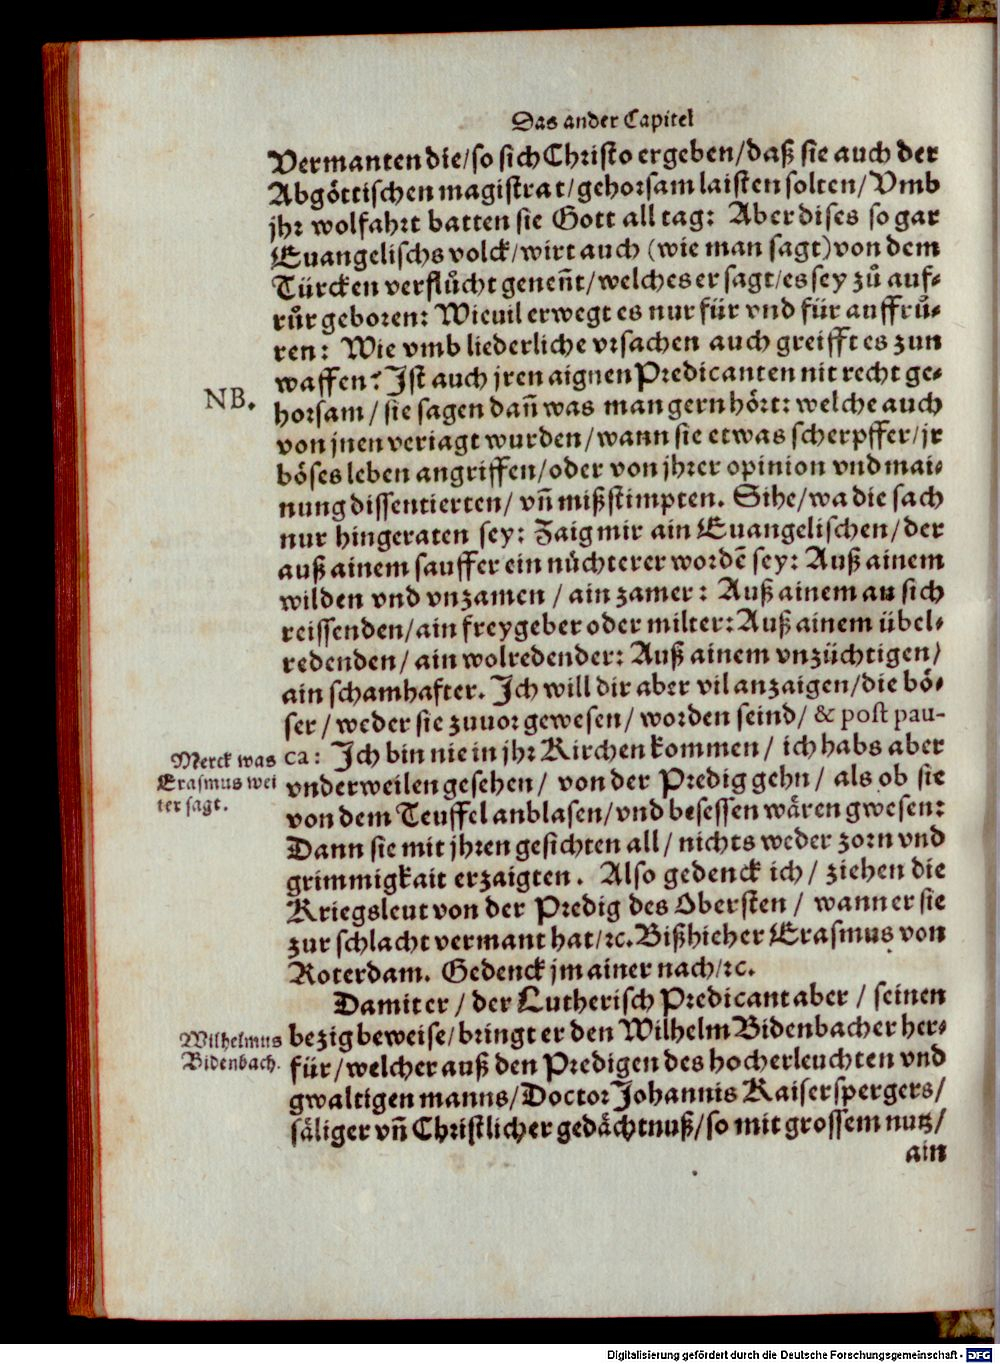 Das ander Capitel
Vermanten die/so sich Christo ergeben/daß sie auch der
Abgöttischen magistrat/gehorsam laisten solten/Vmb
jhr wolfahrt batten sie Gott all tag: Aber dises so gar
Euangelischs volck/wirt auch (wie man sagt) von dem
Türcken verflůcht genen̄t/welches er sagt/es sey zů auf-
růr geboren: Wieuil erwegt es nur für vnd für auffrů-
ren: Wie vmb liederliche vrsachen auch greifft es zun
waffen? Ist auch jren aignen Predicanten nit recht ge-
NB.
horsam/sie sagen dan̄ was man gern hört: welche auch
von jnen veriagt wurden/wann sie etwas scherpffer/jr
böses leben angriffen/oder von jhrer opinion vnd mai-
nung dissentierten/vn̄ mißstimpten. Sihe/wa die sach
nur hingeraten sey: Zaig mir ain Euangelischen/der
auß ainem sauffer ein nüchterer wordē sey: Auß ainem
wilden vnd vnzamen/ain zamer: Auß ainem an sich
reissenden/ain freygeber oder milter: Auß ainem übel-
redenden/ain wolredender: Auß ainem vnzüchtigen/
ain schamhafter. Ich will dir aber vil anzaigen/die bö-
ser/weder sie zuuor gewesen/worden seind/& post pau-
ca: Ich bin nie in jhr Kirchen kommen/ich habs aber
Merck was
Erasmus wei
ter sagt.
vnderweilen gesehen/von der Predig gehn/als ob sie
von dem Teuffel anblasen/vnd besessen wären gwesen:
Dann sie mit jhren gesichten all/nichts weder zorn vnd
grimmigkait erzaigten. Also gedenck ich/ziehen die
Kriegsleut von der Predig des Obersten/wann er sie
zur schlacht vermant hat/ꝛc. Bißhieher Erasmus von
Roterdam. Gedenck jm ainer nach/ꝛc.
Damit er/der Lutherisch Predicant aber/seinen
bezig beweise/bringt er den Wilhelm Bidenbacher her-
Wilhelmus
Bidenbach.
für/welcher auß den Predigen des hocherleuchten vnd
gwaltigen manns/Doctor Johannis Kaiserspergers/
säliger vn̄ Christlicher gedächtnuß/so mit grossem nutz/
ain
Digitalisierung gefördert durch die Deutsche Forschungsgemeinschaft - DFG